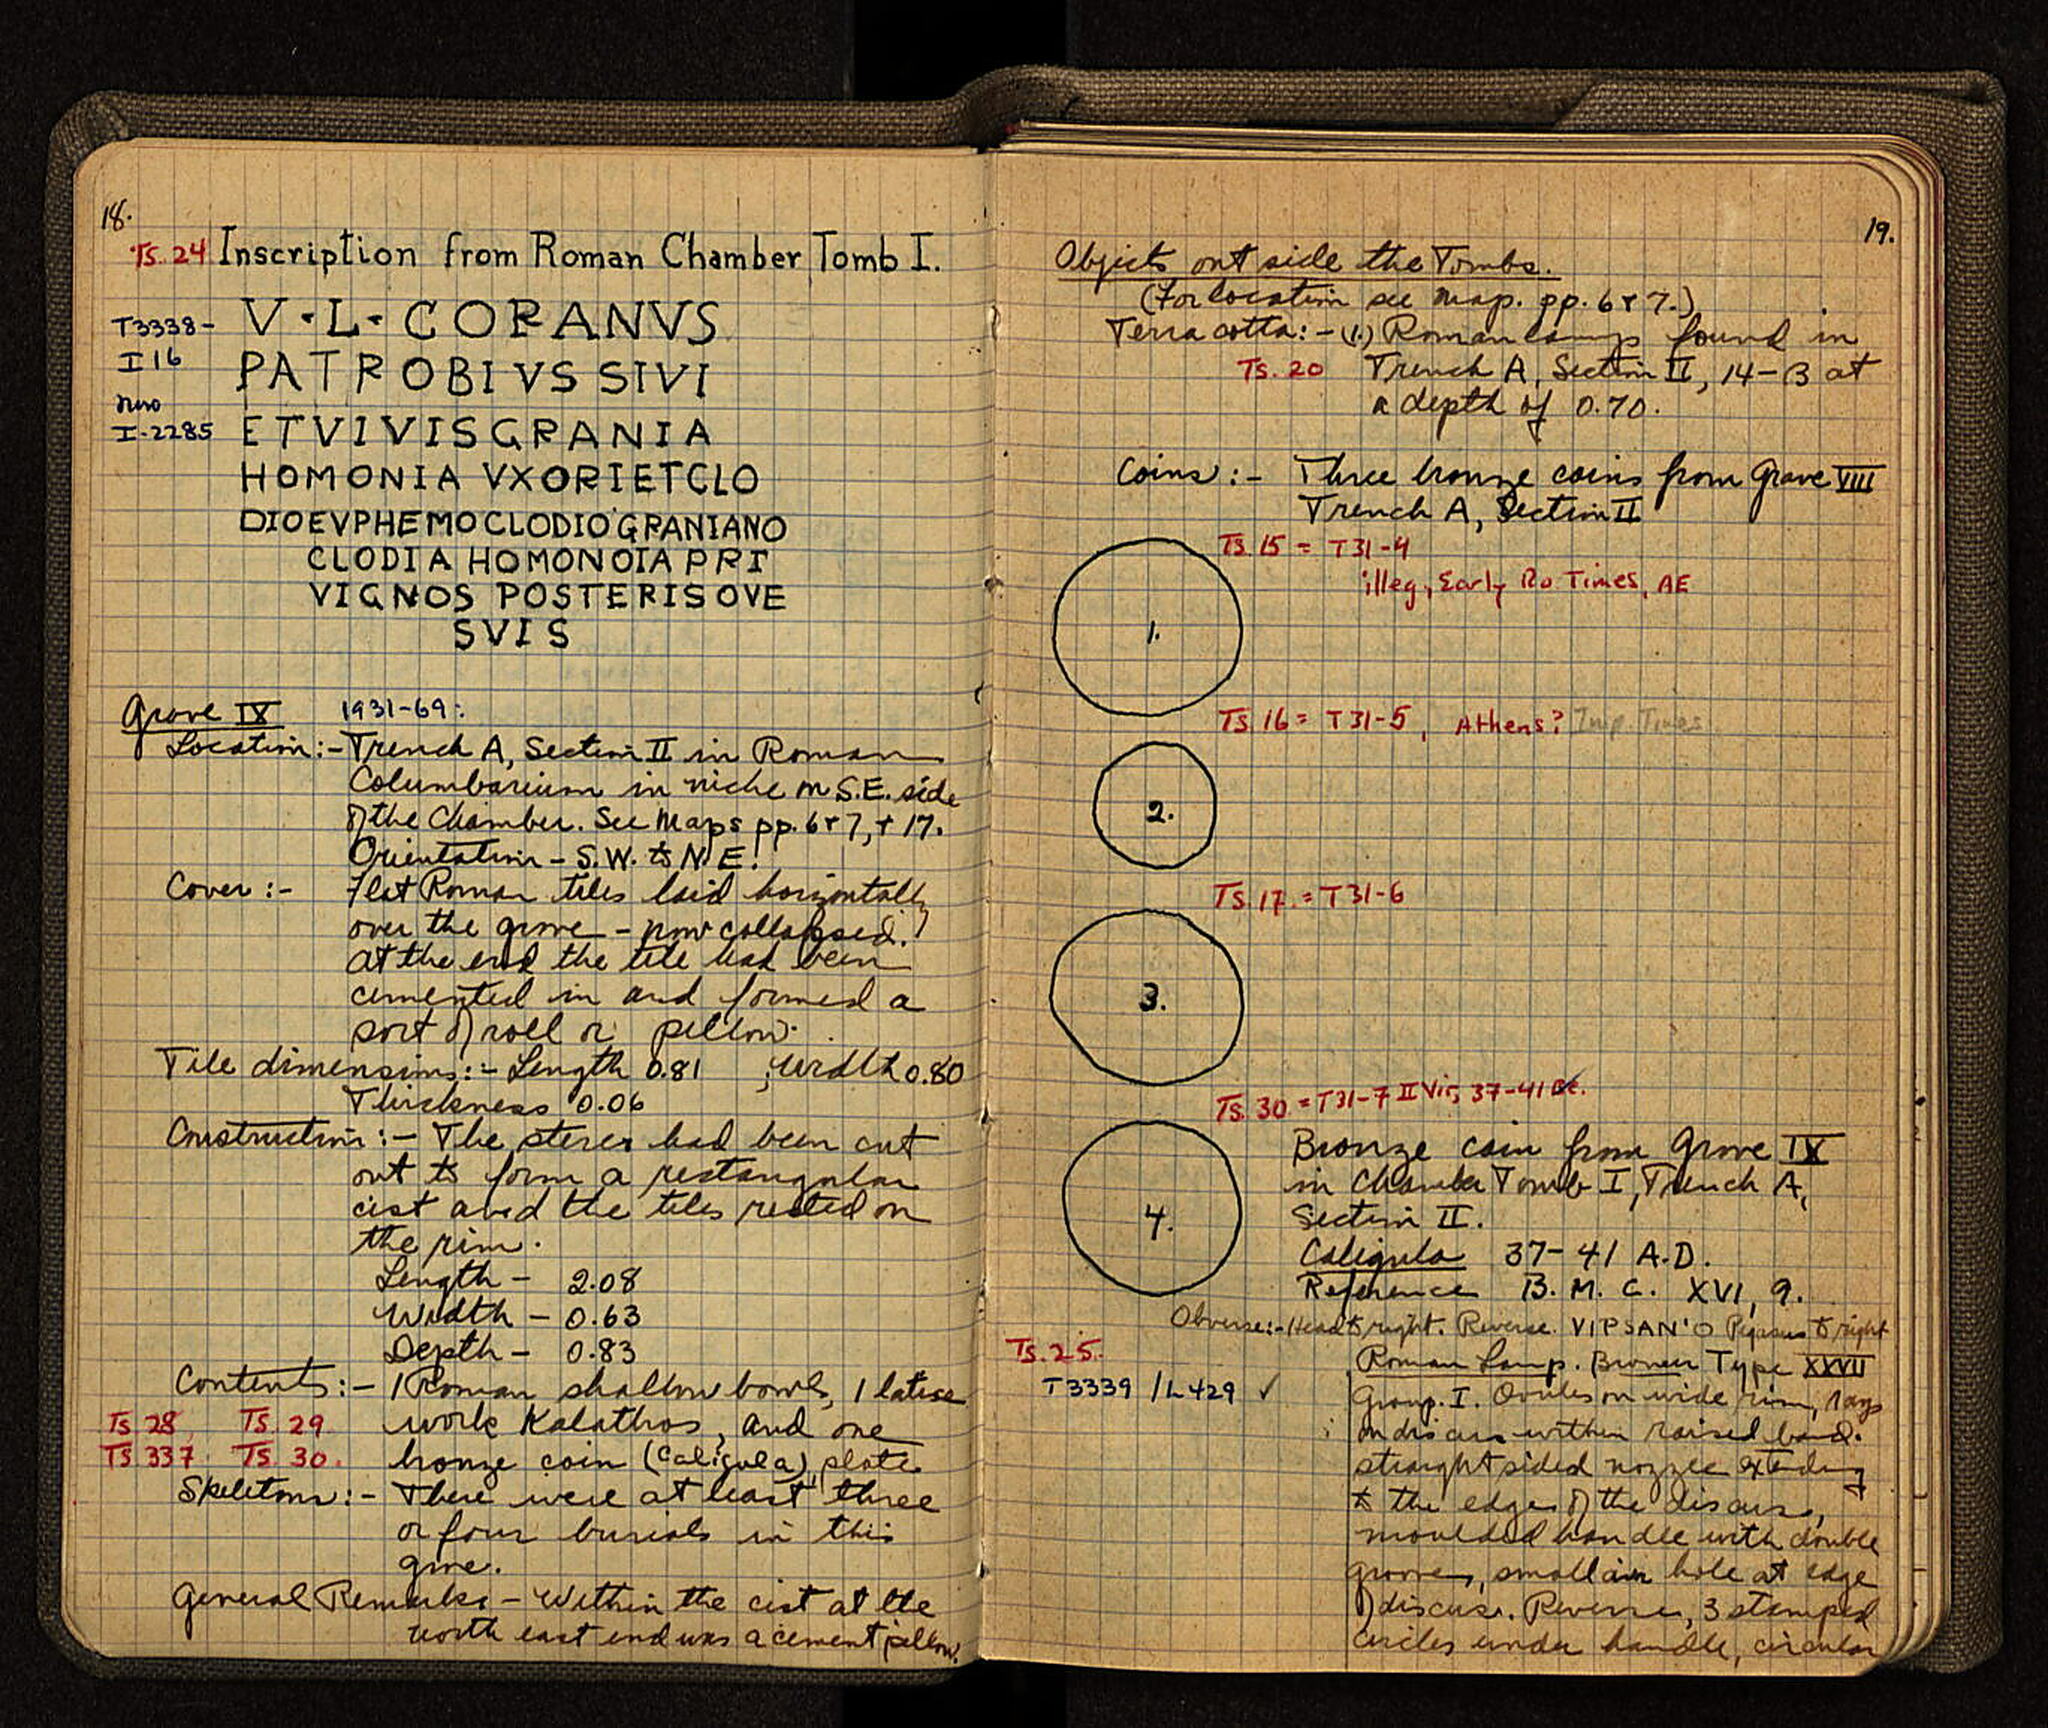 18.
Ts. 24 Inscription from Roman Chamber Tomb I.
T3338-
I 16
now
I-2285
V·L·CORANVS
PATROBIVS SIVI
ETVIVISGRANIA
HOMONIA VXORIETCLO
DIOEVPHEMOCLODIOGRANIANO
CLODIA HOMONOIA PRI
VIGNOS POSTERISQVE
SVIS
Grave IX 1931-69:
Location:- Trench A, Section II in Roman
Columbarium in niche on S.E. side
of the Chamber. See Maps pp. 6+7, + 17.
Orientation - S.W. to N.E.
Cover:- Flat Roman tiles laid horizontally
over the grave - now collapsed.
At the end the tile had been
cemented in and formed a
sort of roll or pillow.
Tile dimensions:- Length 0.81 ; Width 0.80
Thickness 0.06
Construction:- The stereo had been cut
out to form a rectangular
cist and the tiles rested on
the rim.
Length - 2.08
Width - 0.63
Depth - 0.83
Contents:- 1 Roman shallow bowl, 1 latice
Ts 28, Ts. 29 work Kalathos, and one
Ts 337. Ts. 30. bronze coin (Caligula) plate
Skeletons:- There were at least three
or four burials in this
grave.
General Remarks - Within the cist at the
north east end was a cement pillow.
19.
Objects out side the Tombs.
(For location see map. pp. 6+7.)
Terra cotta:- (1.) Roman lamp found in
Ts. 20 Trench A, Section II, 14-B at
a depth of 0.70.
Coins:- Three bronze coins from Grave VIII
Trench A, Section II
Ts. 15 = T31-4
illeg, Early Ro Times, AE
1.
Ts. 16 = T31-5, Athens? Imp. Times
2.
Ts. 17. = T31-6
3.
Ts. 30 = T31-7 II Vir, 37-41
4.
Bronze coin from Grave IX
in Chamber Tomb I, Trench A,
Section II.
Caligula 37-41 A.D.
Reference B.M.C. XVI, 9.
Obverse:- Head to right. Reverse. VIPSAN'O Pegasus to right
Ts. 25.
T3339 / L429 ✓
Roman Lamp. Broneer Type XXVII
Group. I. Ovules on wide rim, rays
on discus within raised band.
straight sided nozzle extending
to the edge of the discus,
moulded handle with double
grooves, small air hole at edge
of discus. Reverse, 3 stamped
circles under handle, circular